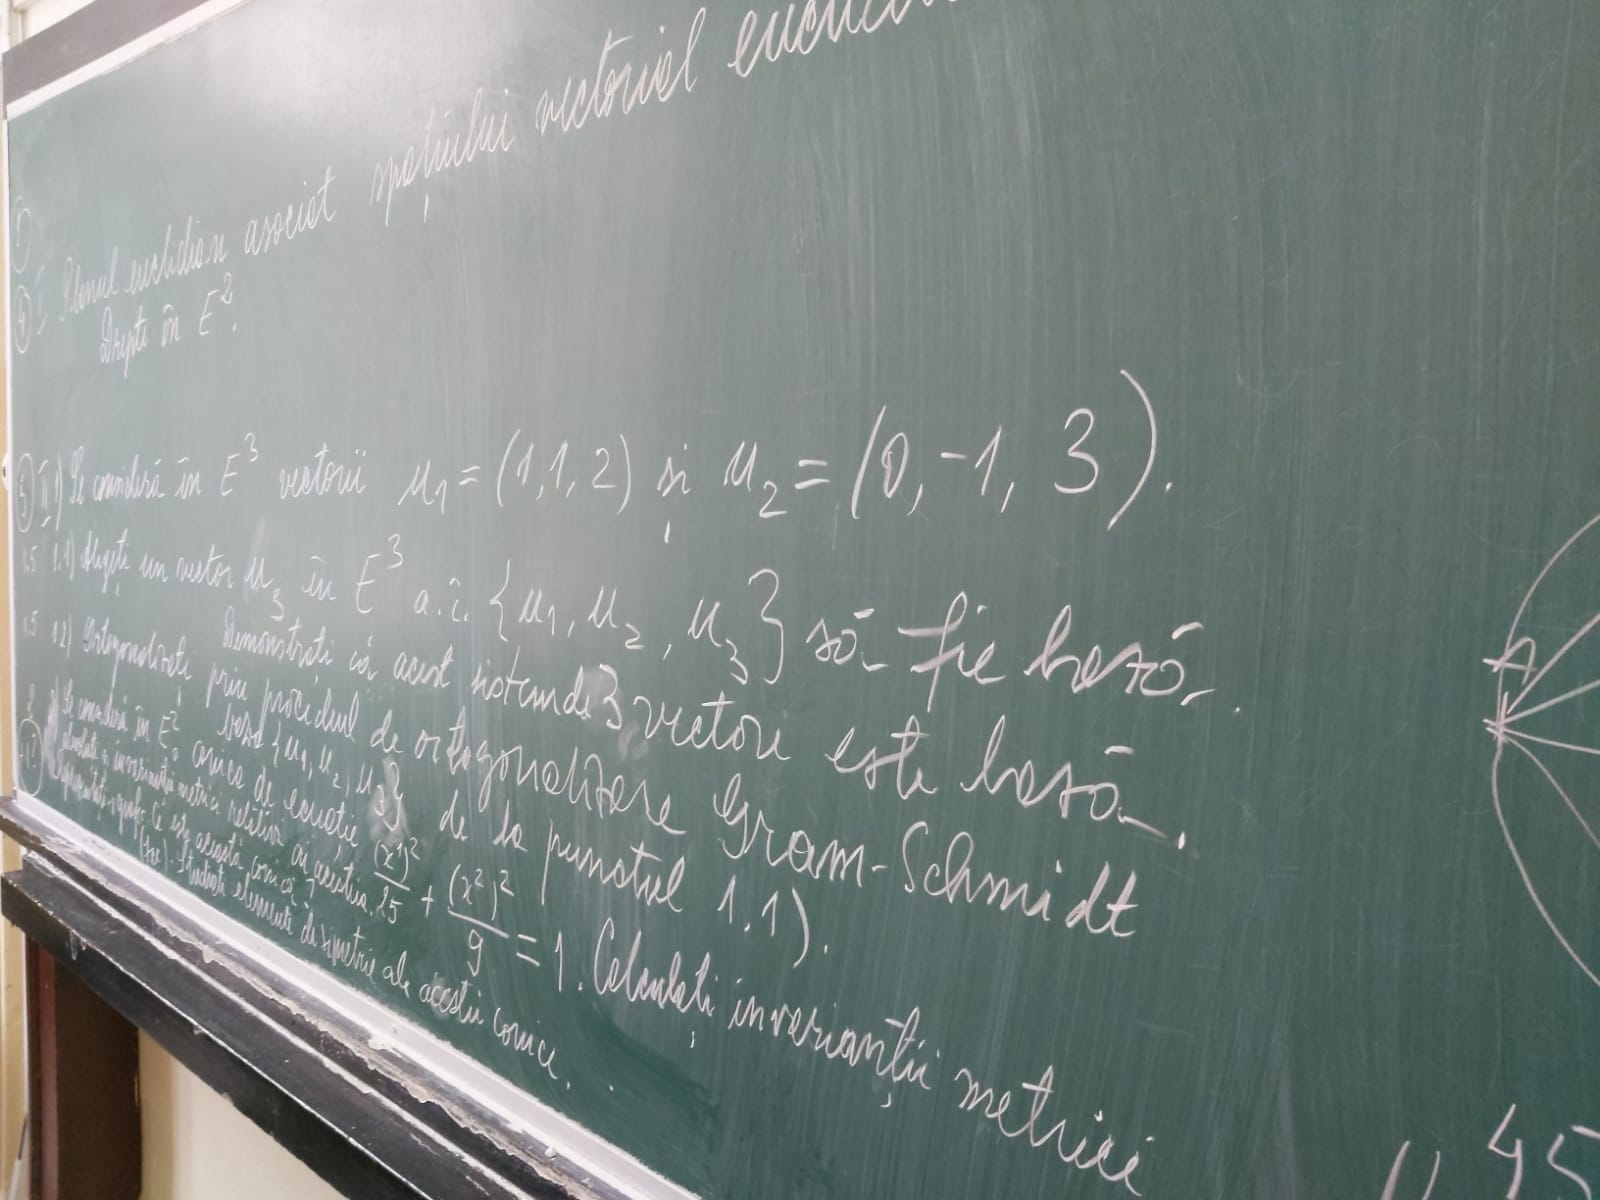 ① Planul euclidian asociat spațiului vectorial
④ I Drepte în E².
③ II 1) Se consideră în E³ vectorii u₁ = (1,1,2) și u₂ = (0,-1, 3).
1.5 1.1) Alegeți un vector u₃ în E³ a.î. {u₁, u₂, u₃} să fie bază.
Demonstrați că acest sistem de 3 vectori este bază.
1.5 1.2) Ortogonalizați prin procedeul de ortogonalizare Gram-Schmidt
baza {u₁, u₂, u₃} de la punctul 1.1).
2 2) Se consideră în E² conica de ecuație (x¹)²/25 + (x²)²/9 = 1. Calculați invarianții metrici
absoluți și invarianții metrici relativi ai acesteia.
Ce este această conică?
Reprezentați-o grafic. Studiați elementele de simetrie ale acestei conice.
A
45